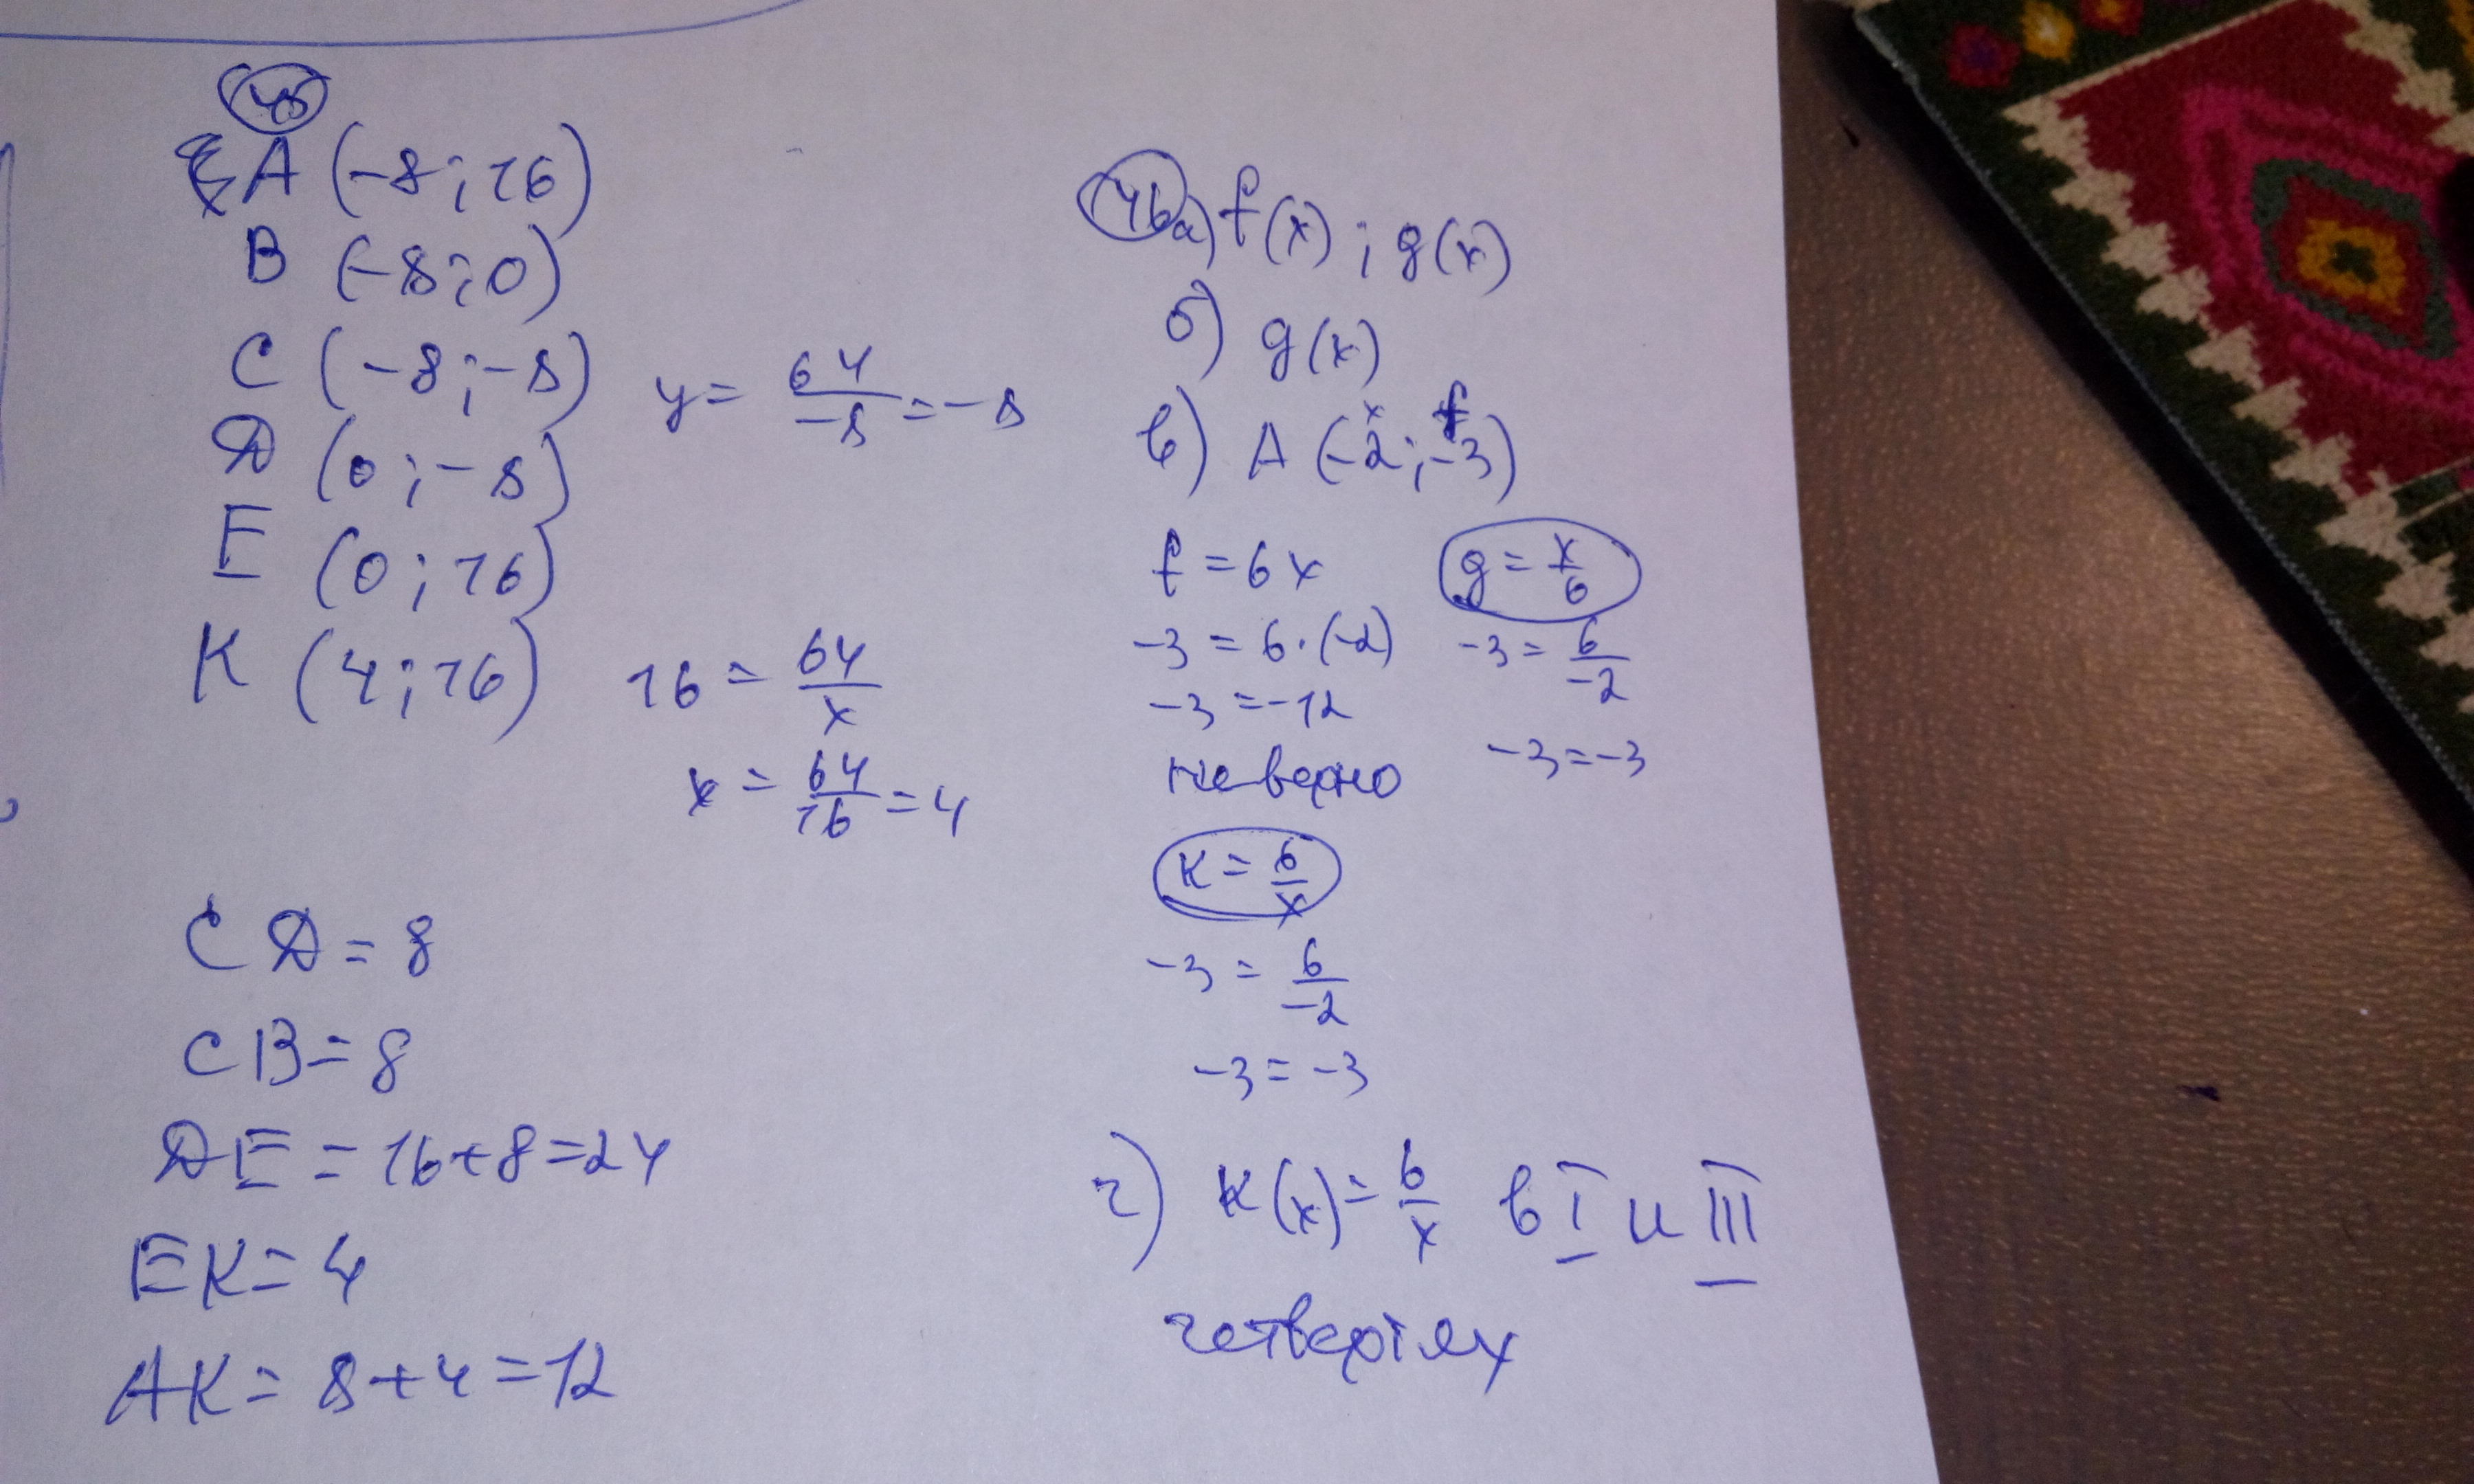 45
A (-8; 16)
B (-8; 0)
C (-8; -8) y = 64/-8 = -8
D (0; -8)
E (0; 16)
K (4; 16) 16 = 64/x
x = 64/16 = 4
CD = 8
CB = 8
DE = 16+8=24
EK = 4
AK = 8+4=12
46 а) f(x) ; g(x)
б) g(x)
в) A (-2; -3)
x f
f = 6x g = x/6
-3 = 6·(-2) -3 = 6/-2
-3 = -12 -3 = -3
не верно
K = 6/x
-3 = 6/-2
-3 = -3
г) K(x) = 6/x в I и III
четвертях